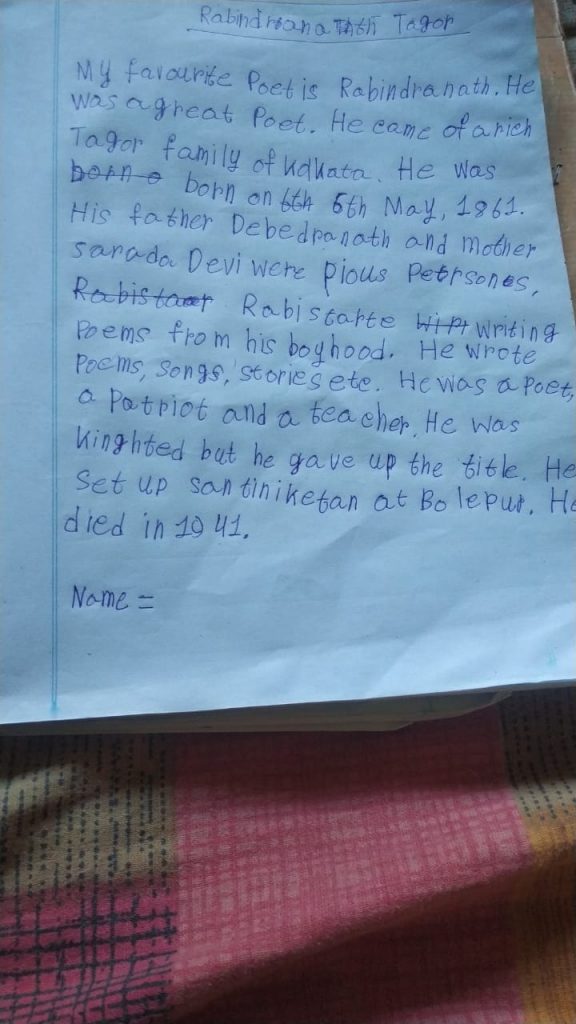 Rabindranath Tagor
My favourite Poet is Rabindranath. He
was a great Poet. He came of a rich
Tagor family of Kolkata. He was
born o born on 6th 6th May, 1861.
His father Debedranath and mother
sarada Devi were pious Petrsones,
Rabistart Rabi starte writing
Poems from his boyhood. He wrote
Poems, songs, stories etc. He was a Poet,
a Patriot and a teacher. He was
kinghted but he gave up the title. He
set up santiniketan at Bolepur. He
died in 1941.
Name =